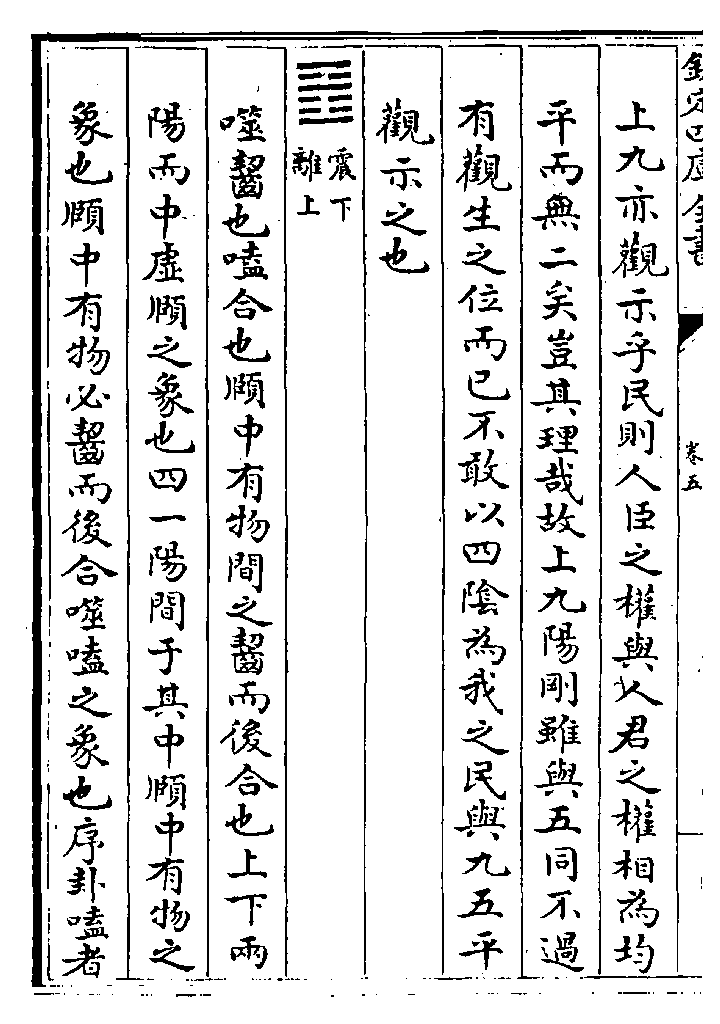 欽定四庫全書
卷五
上九亦觀示乎民則人臣之權與人君之權相為均
平而無二矣豈其理哉故上九陽剛雖與五同不過
有觀生之位而已不敢以四陰為我之民與九五平
觀示之也
䷔
震下
離上
噬齧也嗑合也頤中有物間之齧而後合也上下兩
陽而中虛頤之象也四一陽間于其中頤中有物之
象也頤中有物必齧而後合噬嗑之象也序卦嗑者